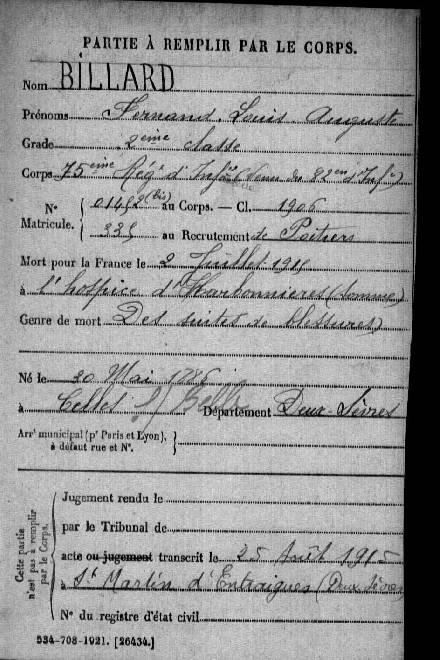 PARTIE À REMPLIR PAR LE CORPS.
Nom BILLARD
Prénoms Fernand Louis Auguste
Grade 2ème classe
Corps 75ème Rég' d'Infie (Venu du 82e d'Infie)
N° Matricule. { 01492 (bis) au Corps. — Cl. 1906
au Recrutement de Poitiers
Mort pour la France le 2 Juillet 1915
à l'hospice d'Harbonnieres (Somme)
Genre de mort Des suites de blessures
Né le 20 Mai 1886
à Celles s/ Belle Département Deux-Sèvres
Arrt municipal (pr Paris et Lyon), à défaut rue et N°.
Cette partie n'est pas à remplir par le Corps.
Jugement rendu le
par le Tribunal de
acte ou jugement transcrit le 25 Août 1915
à St Martin d'Entraigues (Deux-Sèvres)
N° du registre d'état civil
534-708-1921. [26434.]